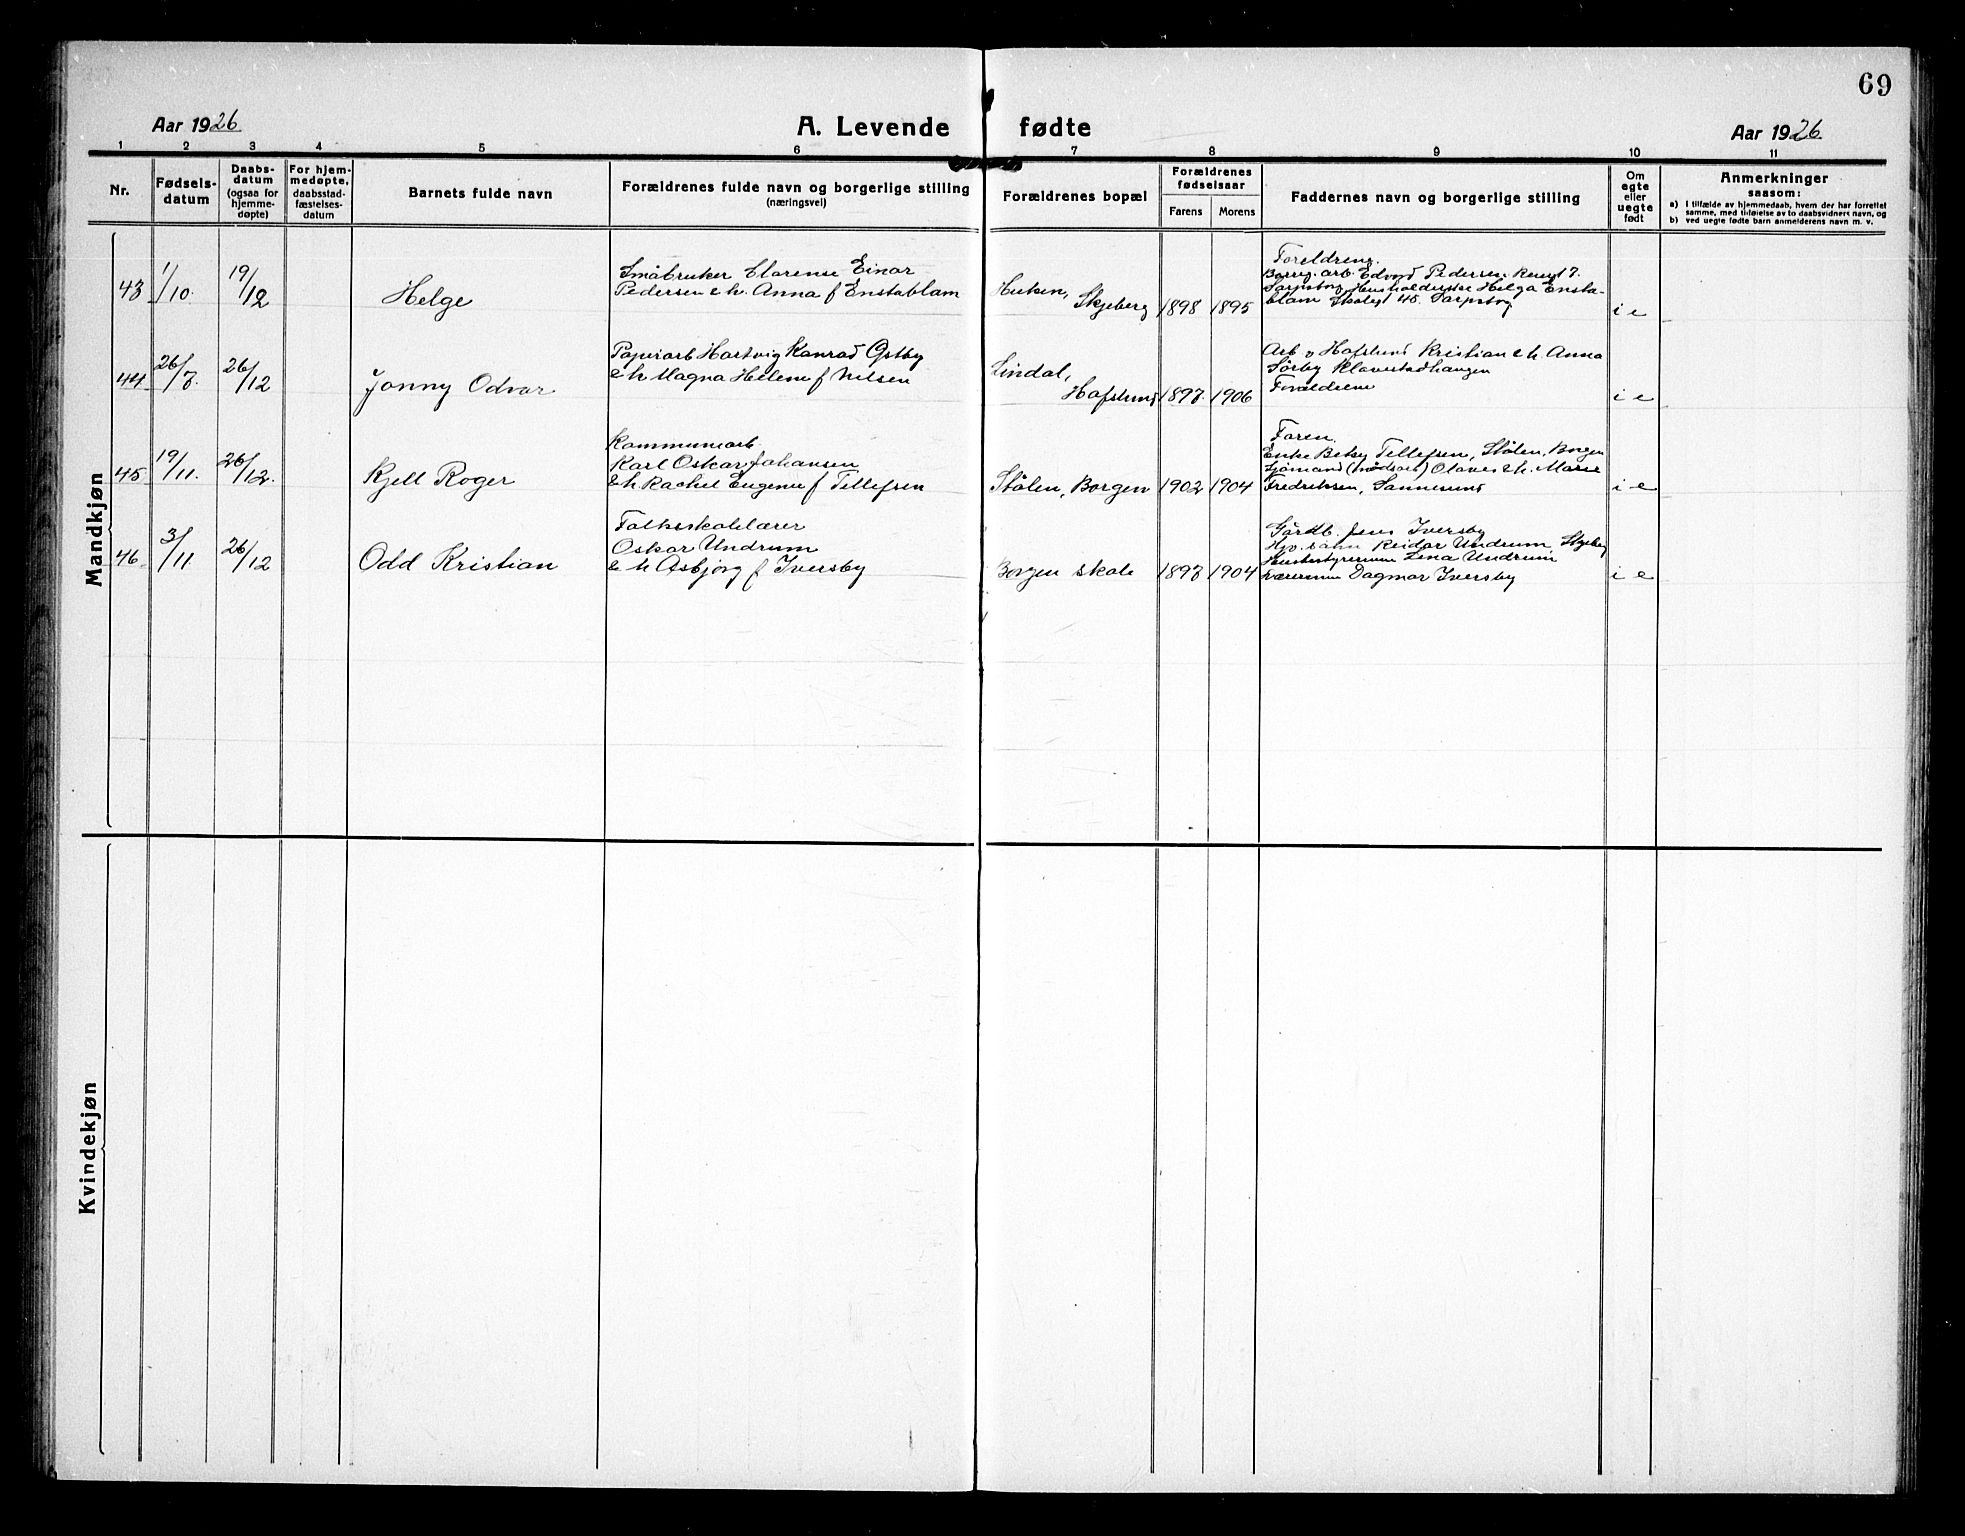 69
Aar 1926
A. Levende fødte
Aar 1926
1 2 3 4 5 6 7 8 9 10 11
Nr.
Fødselsdatum
Daabsdatum (ogsaa for hjemmedøpte)
For hjemmedøpte, daabsstadfæstelsesdatum
Barnets fulde navn
Forældrenes fulde navn og borgerlige stilling
(næringsvei)
Forældrenes bopæl
Forældrenes fødselsaar
Farens Morens
Faddernes navn og borgerlige stilling
Om egte eller uegte født
Anmerkninger
saasom:
a) I tilfælde av hjemmedaab, hvem der har forrettet
samme, med tilføielse av to daabsvidners navn, og
b) ved uegte fødte barn anmelderens navn m. v.
Mandkjøn
43 1/10. 19/12 Helge
Småbruker Clarense Einar
Pedersen & h. Anna f Enstablam
Skjeberg 1898 1895
Foreldrene.
arb. Edvard Pedersen 7.
Sarpsborg, Helga Ensta-
blam 45. Sarpsborg
i e
44 26/7. 26/12 Jonny Odvar
Papirarb Hartvig Konrad Østby
& h Magna Helene f Nilsen
Lindal,
Hafslund 1897. 1906
Arb v Hafslund Kristian & h. Anna
Sørby Klavestadhaugen
Foreldrene
i e
45 19/11. 26/12. Kjell Roger
Kommunearb.
Karl Oskar Johansen
& h Rachel Eugenie f Tellefsen
Stålen, Borgen 1902 1904
Faren.
Enke Betsy Tellefsen, Stålen, Borgen
Sjømand Olaves & h. Marie
Fredriksen, Sannesund
i e
46 3/11. 26/12 Odd Kristian
Folkeskolelærer
Oskar Undrum
& h Asbjørg f Iversby
Borgen skole 1897 1904
Gårdb. Jens Iversby
Reidar Undrum, Skjeberg
Lena Undrum
Dagmar Iversby
i e
Kvindekjøn